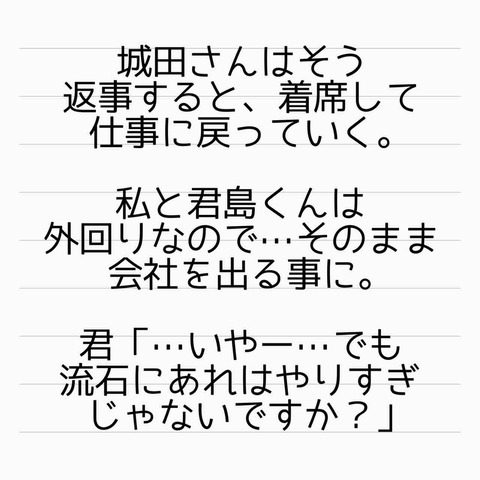 城田さんはそう
返事すると、着席して
仕事に戻っていく。
私と君島くんは
外回りなので…そのまま
会社を出る事に。
君「…いやー…でも
流石にあれはやりすぎ
じゃないですか？」